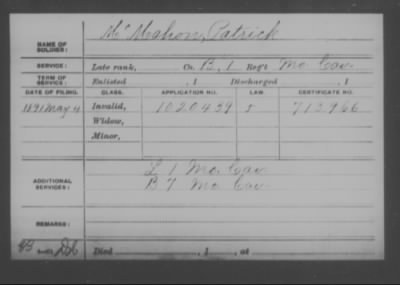 McMahon, Patrick
NAME OF SOLDIER:
SERVICE: Late rank, Co. B, 1 Reg't Mo. Cav.
TERM OF SERVICE: Enlisted , 1 Discharged , 1
DATE OF FILING. CLASS. APPLICATION NO. LAW. CERTIFICATE NO.
1891 May 4 Invalid, 1020439 713966
Widow,
Minor,
ADDITIONAL SERVICES: L 1 Mo. Cav
B 7 Mo Cav
REMARKS:
Died , 1 , at